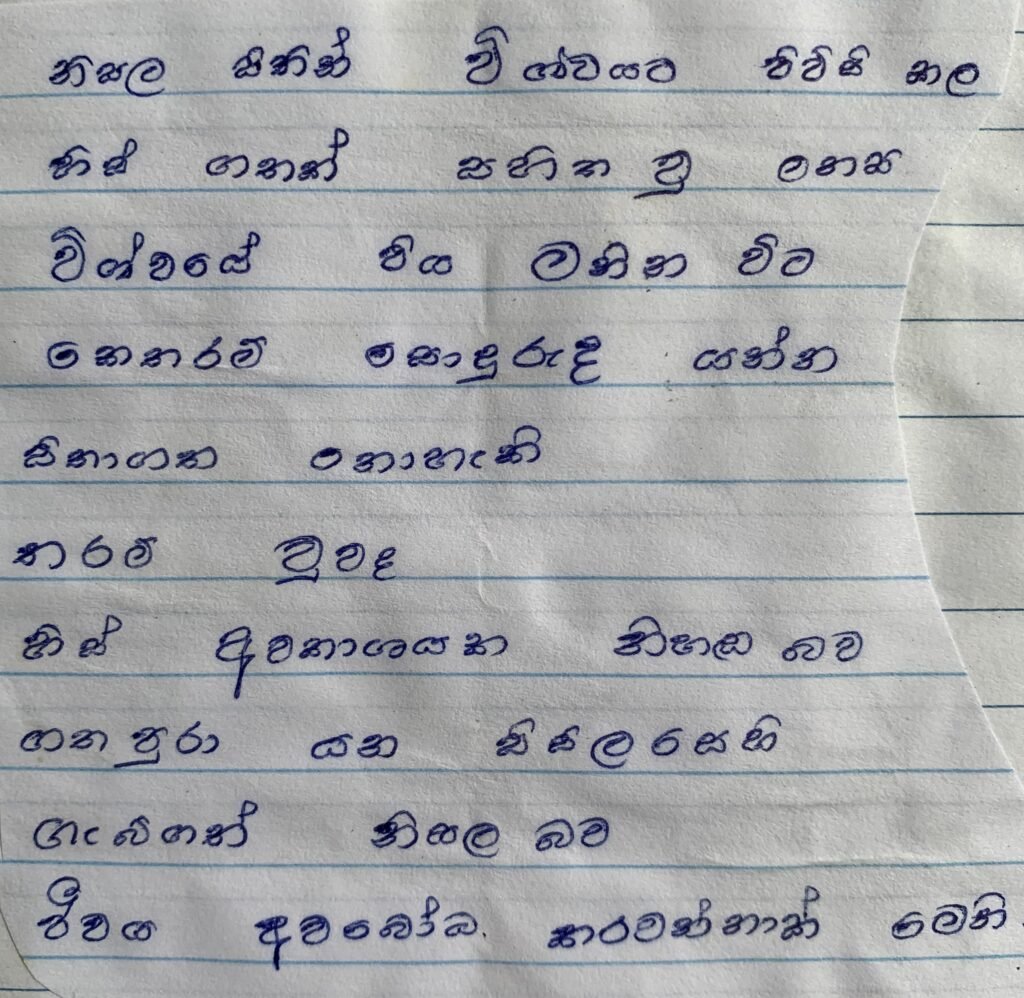 නිසල සිතින් විශ්වයට පිවිසි කල
හිස් ගතක් සහිත වූ ලෙනස
විශ්වයේ එය මනින විට
කෙතරම් සොඳුරුදි යන්න
සිතාගත නොහැකි
තරම් වුවද
හිස් අවකාශයක නිහඬ බව
ගත පුරා යන සිසිලසෙහි
ගැබ්ගත් නිසල බව
ජීවය අවබෝධ කරවන්නාක් මෙනි